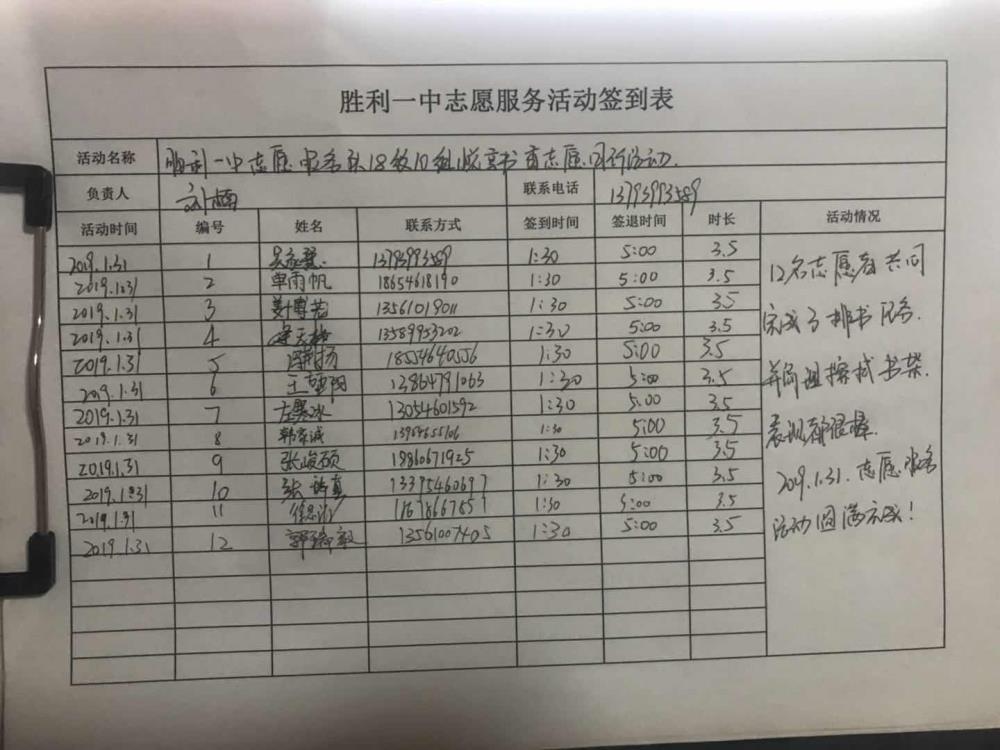 胜利一中志愿服务活动签到表
活动名称 胜利一中志愿服务队18级10组悦享书斋志愿同行活动.
负责人 刘楠 联系电话 13793993589
活动时间 编号 姓名 联系方式 签到时间 签退时间 时长 活动情况
2019.1.31 1 13793993589 1:30 5:00 3.5
2019.1.31 2 单雨帆 18654618190 1:30 5:00 3.5
2019.1.31 3 13561019011 1:30 5:00 3.5
2019.1.31 4 13589953202 1:30 5:00 3.5
2019.1.31 5 18554640556 1:30 5:00 3.5
2019.1.31 6 13864791063 1:30 5:00 3.5
2019.1.31 7 左寒冰 13054601592 1:30 5:00 3.5
2019.1.31 8 韩京诚 1:30 5:00 3.5
2019.1.31 9 张峻硕 18860671925 1:30 5:00 3.5
2019.1.31 10 张 真 13395460697 1:30 5:00 3.5
2019.1.31 11 1:30 5:00 3.5
2019.1.31 12 13561007405 1:30 5:00 3.5
12名志愿者共同
完成了排书任务.
并擦拭书架.
表现都很棒.
2019.1.31.志愿服务
活动圆满完成!